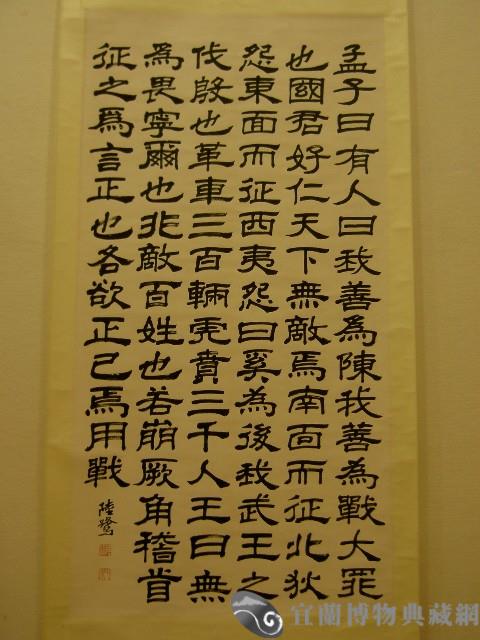 孟子曰有人曰我善為陳我善為戰大罪
也國君好仁天下無敵焉南面而征北狄
怨東面而征西夷怨曰奚為後我武王之
伐殷也革車三百輛虎賁三千人王曰無
為畏寧爾也非敵百姓也若崩厥角稽首
征之爲言正也各欲正己焉用戰
陸鷺
宜蘭博物典藏網